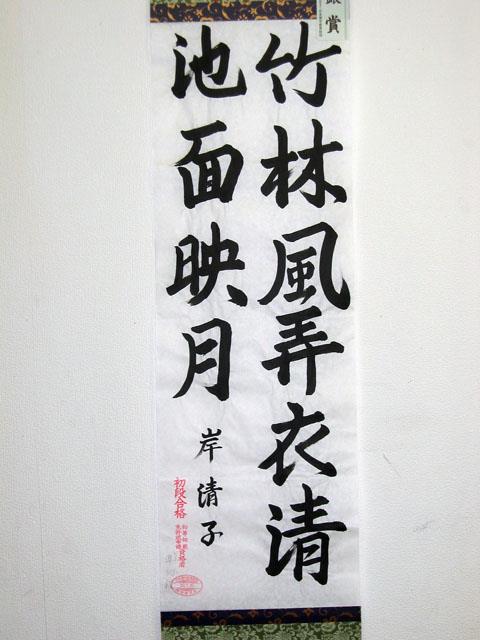 竹林風弄衣清
池面映月
岸清子
初段合格
賞